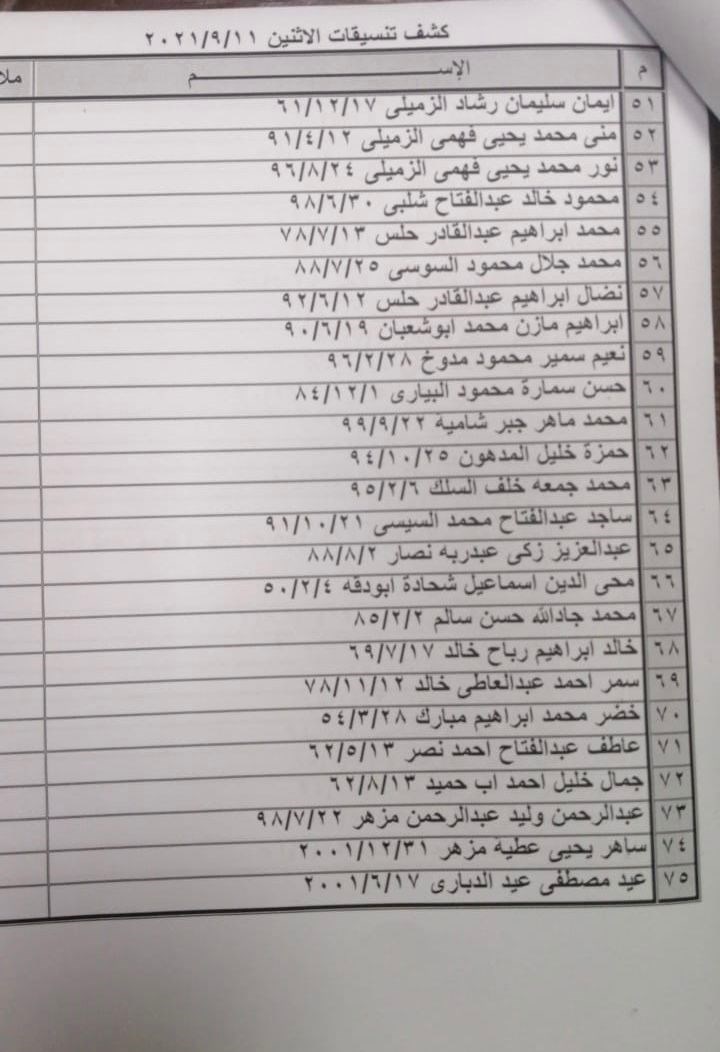 كشف تنسيقات الاثنين ٢٠٢١/٩/١١
م الإســـــــــــم ملا
٥١ ايمان سليمان رشاد الزميلى ٦١/١٢/١٧
٥٢ منى محمد يحيى فهمى الزميلى ٩١/٤/١٢
٥٣ نور محمد يحيى فهمى الزميلى ٩٦/٨/٢٤
٥٤ محمود خالد عبدالفتاح شلبى ٩٨/٦/٣٠
٥٥ محمد ابراهيم عبدالقادر حلس ٧٨/٧/١٣
٥٦ محمد جلال محمود السوسى ٨٨/٧/٢٥
٥٧ نضال ابراهيم عبدالقادر حلس ٩٢/٦/١٢
٥٨ ابراهيم مازن محمد ابوشعبان ٩٠/٦/١٩
٥٩ نعيم سمير محمود مدوخ ٩٦/٢/٢٨
٦٠ حسن سمارة محمود البيارى ٨٤/١٢/١
٦١ محمد ماهر جبر شامية ٩٩/٩/٢٢
٦٢ حمزة خليل المدهون ٩٤/١٠/٢٥
٦٣ محمد جمعه خلف السلك ٩٥/٢/٦
٦٤ ساجد عبدالفتاح محمد السيسى ٩١/١٠/٢١
٦٥ عبدالعزيز زكى عبدربه نصار ٨٨/٨/٢
٦٦ محى الدين اسماعيل شحادة ابودقه ٥٠/٢/٤
٦٧ محمد جادالله حسن سالم ٨٥/٢/٢
٦٨ خالد ابراهيم رباح خالد ٦٩/٧/١٧
٦٩ سمر احمد عبدالعاطى خالد ٧٨/١١/١٢
٧٠ خضر محمد ابراهيم مبارك ٥٤/٣/٢٨
٧١ عاطف عبدالفتاح احمد نصر ٦٢/٥/١٣
٧٢ جمال خليل احمد اب حميد ٦٢/٨/١٣
٧٣ عبدالرحمن وليد عبدالرحمن مزهر ٩٨/٧/٢٢
٧٤ ساهر يحيى عطية مزهر ٢٠٠١/١٢/٣١
٧٥ عيد مصطفى عيد الدبارى ٢٠٠١/٦/١٧